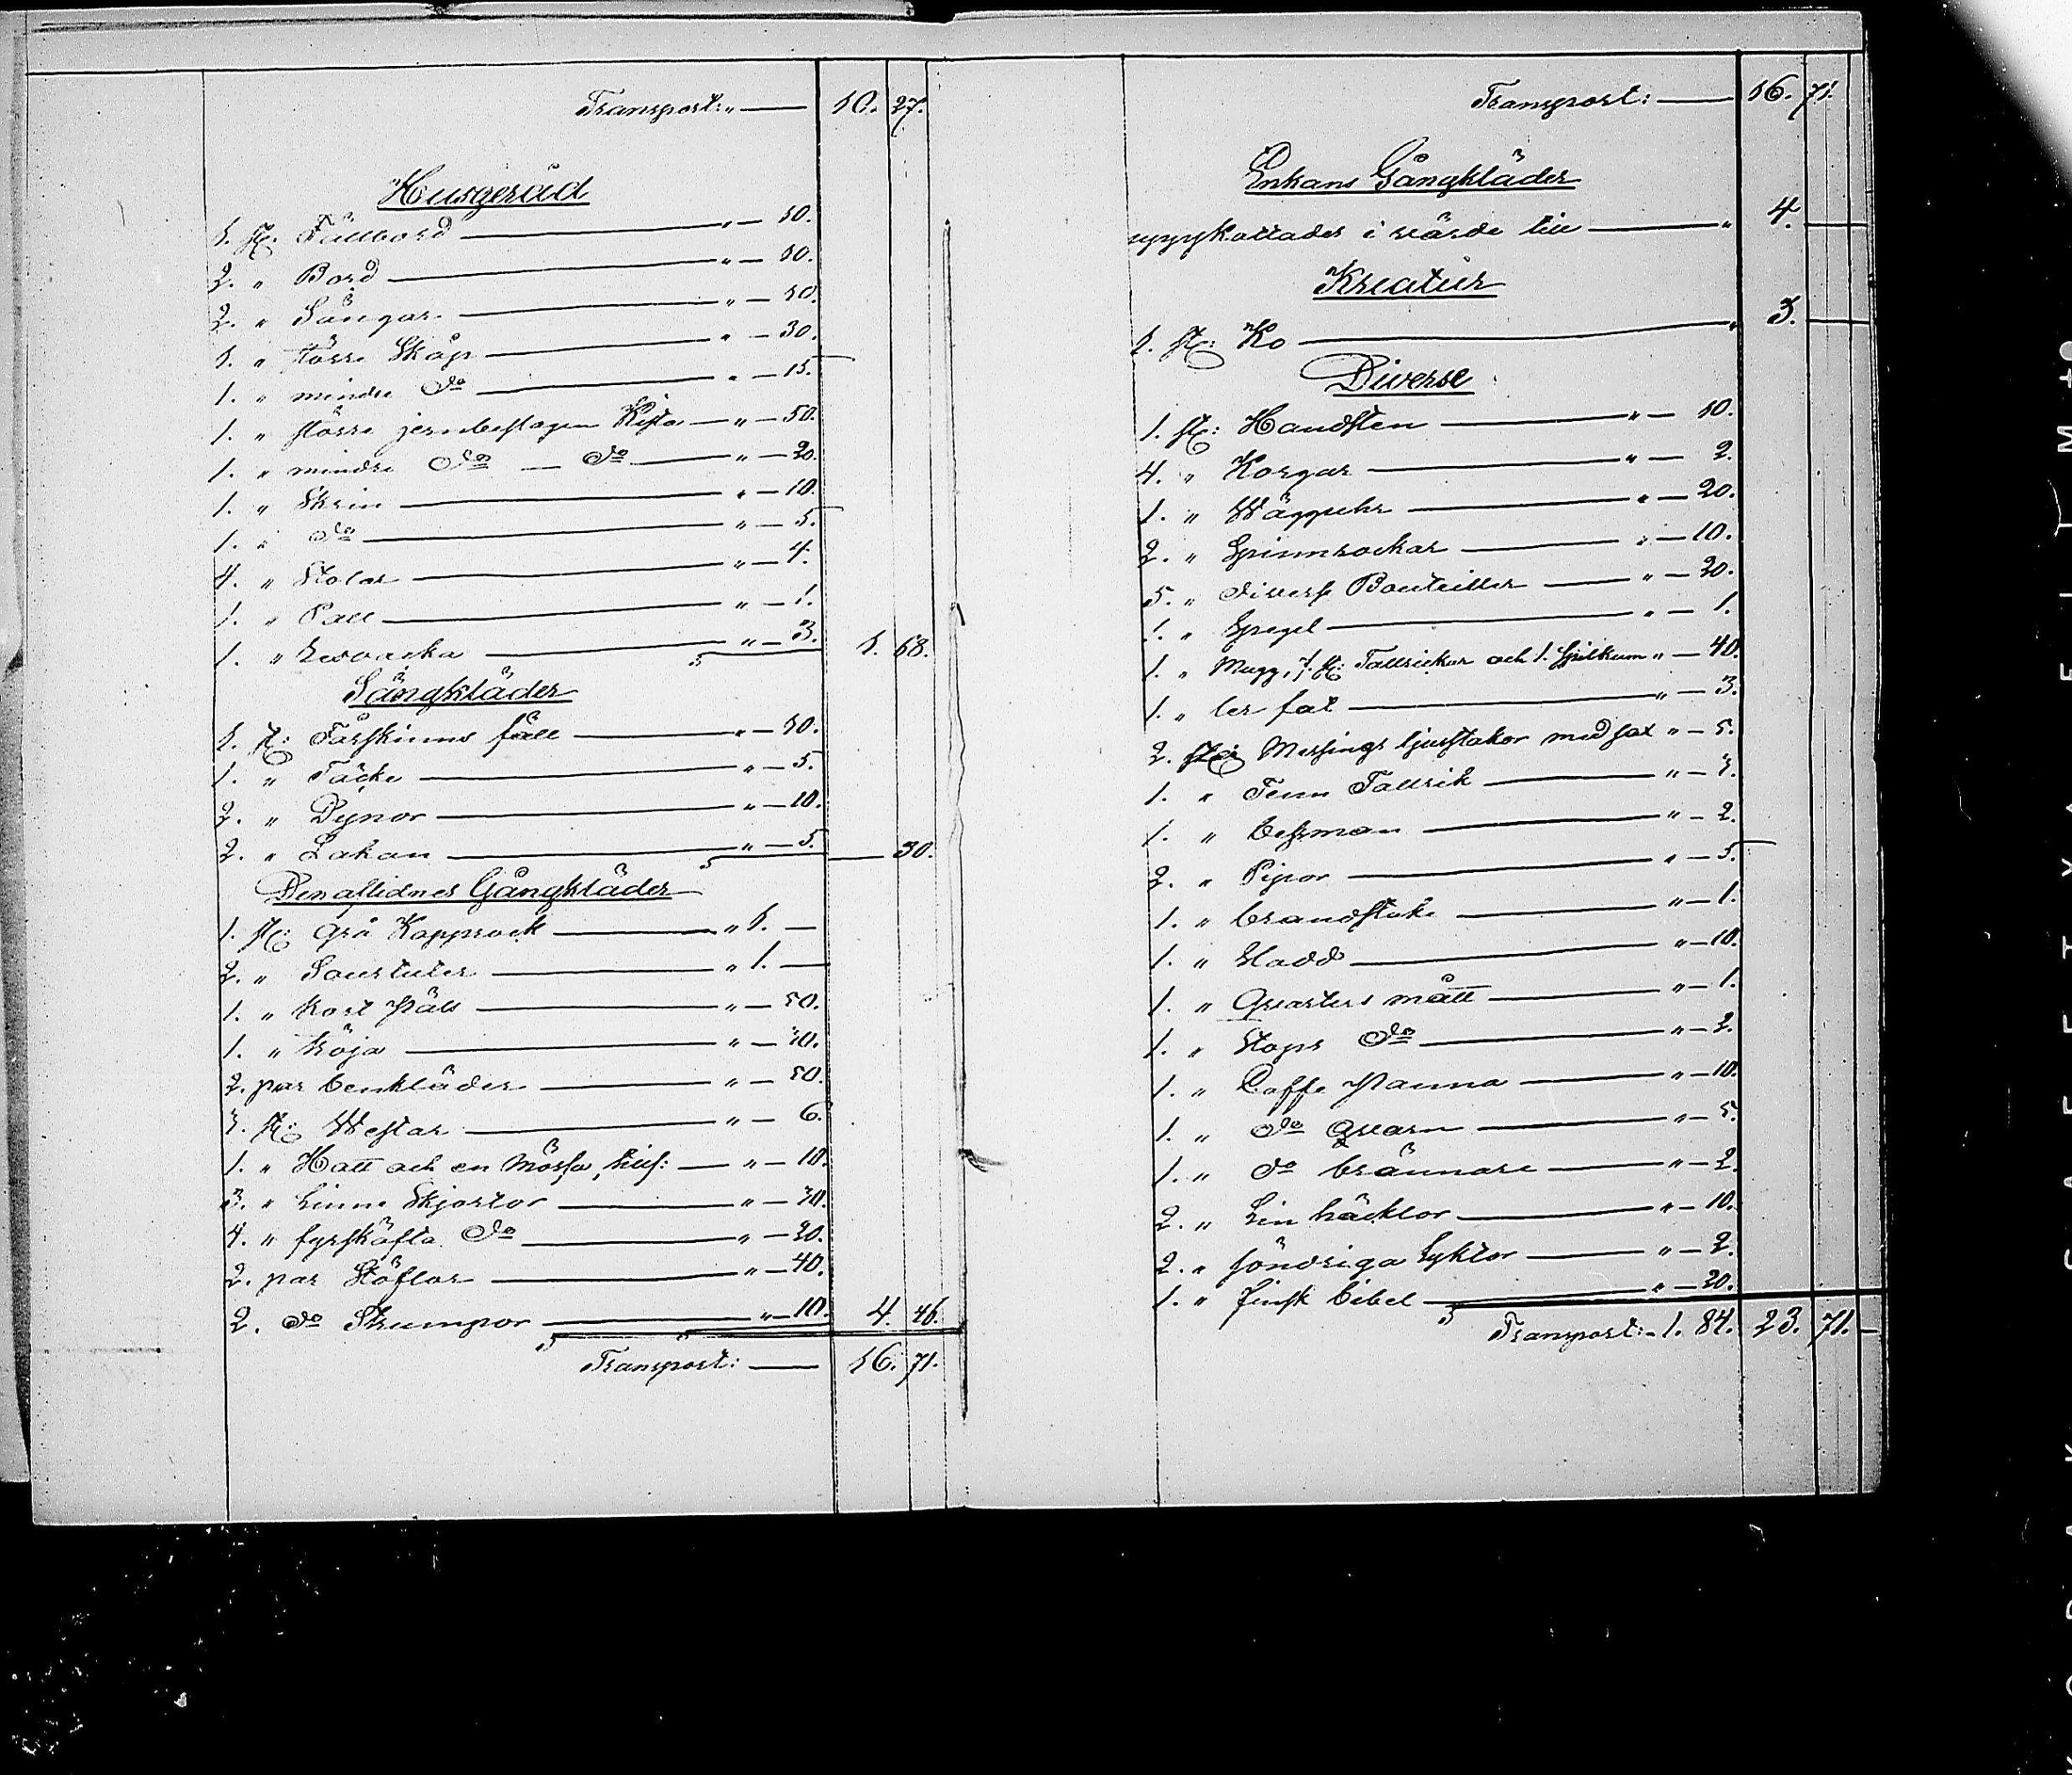 Transport: " — 10. 27.
Husgeråd
1. st: Fällbord " — 10.
2. " Bord " — 10.
2. " Sängar " — 10.
1. " större Skåp " — 30.
1. " mindre do " — 15.
1. " större jernbeslagen Kista " — 50.
1. " mindre do — do " — 20.
1. " Skrin " — 10.
1. " do " — 5.
4. " Stolar " — 4.
1. " Pall " — 1.
1. " — 3. 1. 68.
Sängkläder
1. st: Fårskinns fäll " — 10.
1. " Täcke " — 5.
2. " Dynor " — 10.
2. " Lakan " — 5. — 30.
Den aflidnes Gångkläder
1. st: grå Kapprock " 1. —
2. " Sourtuter " 1. —
1. " kort päls " — 50.
1. " tröja " — 30.
2. par benkläder " — 50.
3. st: Westar " — 6.
1. " Hatt och en Mössa, tills: " — 10.
3. " Linne Skjortor " — 30.
4. " fyrskäfta do " — 20.
2. par Stöflar " — 40.
2. do Strumpor " — 10. 4. 46.
Transport: — 16. 71.
Transport: — 16. 71.
Enkans Gångkläder
uppskattades i värde till " 4. —
Kreatur
1. st: Ko " 3. —
Diverse
1. st: Handsten " — 10.
4. " Korgar " — 2.
1. " Wägguhr " — 20.
2. " Spinnrockar " — 10.
5. " diverse Bouteiller " — 20.
1. " Spegel " — 1.
1. " Mugg, 7. st: Tallrickar och 1. Spilkum " — 40.
1. " ler fat " — 3.
2. st: Messings ljusstakar med sax " — 5.
1. " Tenn Tallrik " — 3.
1. " besman " — 2.
2. " Pipor " — 5.
1. " brandstake " — 1.
1. " Kladd " — 10.
1. " Qvarters mått " — 1.
1. " Stops do " — 2.
1. " Caffe Panna " — 10.
1. " do Qvarn " — 5.
1. " do brännare " — 2.
2. " Lin häcklor " — 10.
2. " söndriga Lyktor " — 2.
1. " finsk bibel " — 20.
Transport: " 1. 84. 23. 71. —